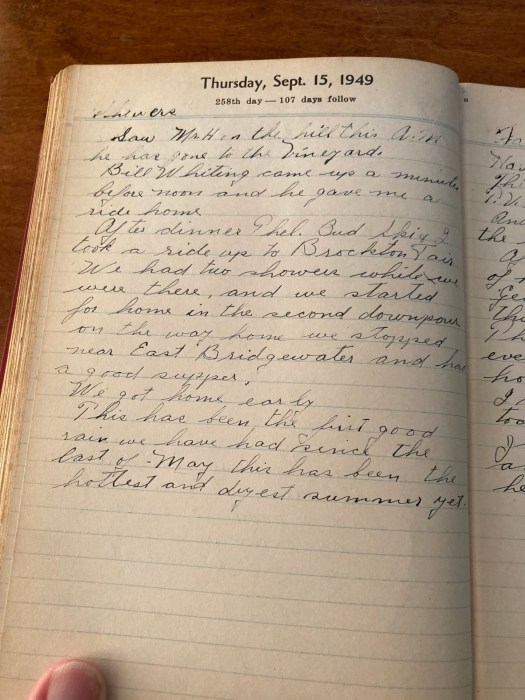 Thursday, Sept. 15, 1949
258th day — 107 days follow
Showers
Saw Mr H on the hill this A.M
he has gone to the Vineyard.
Bill Whiting came up a minute
before noon and he gave me a
ride home
After dinner Phel. Bud Skix I
took a ride up to Brockton Fair
We had two showers while we
were there, and we started
for home in the second downpour
on the way home we stopped
near East Bridgewater and had
a good supper.
We got home early
This has been the first good
rain we have had since the
last of May this has been the
hottest and dryest summer yet.